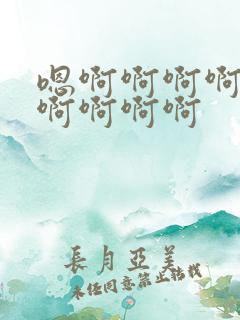 嗯啊啊啊啊
啊啊啊啊
長月亞美
未经同意禁止转载